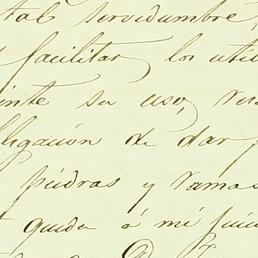 tal servidumbre,
facilitar los útil
inte su uso, 
ligación de dar
piedras y ramas
queda á mi juic